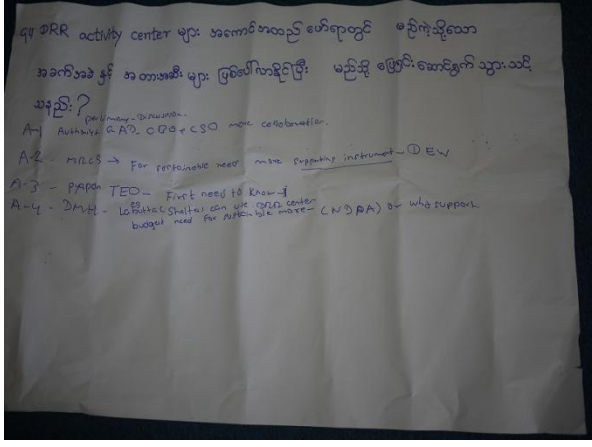 q။ DRR activity center များ အကောင်အထည် ဖော်ရာတွင် မည်ကဲ့သို့သော
အခက်အခဲ နှင့် အတားအဆီး များ ဖြစ်ပေါ်လာနိုင်ပြီး မည်သို့ ဖြေရှင်းဆောင်ရွက် သွားသင့်
သနည်း?
Discussion.
A-1 Authority GAD, CBO & CSO more collaboration.
A-2- MRCS → For sustainable need more supporting instrument - ① EW
A-3 - Pyapon TEO - First need to know -
A-4- DMH - Labutta (Shelter) can use DRR center
budget need for sustainable more - (NDPA) or why support